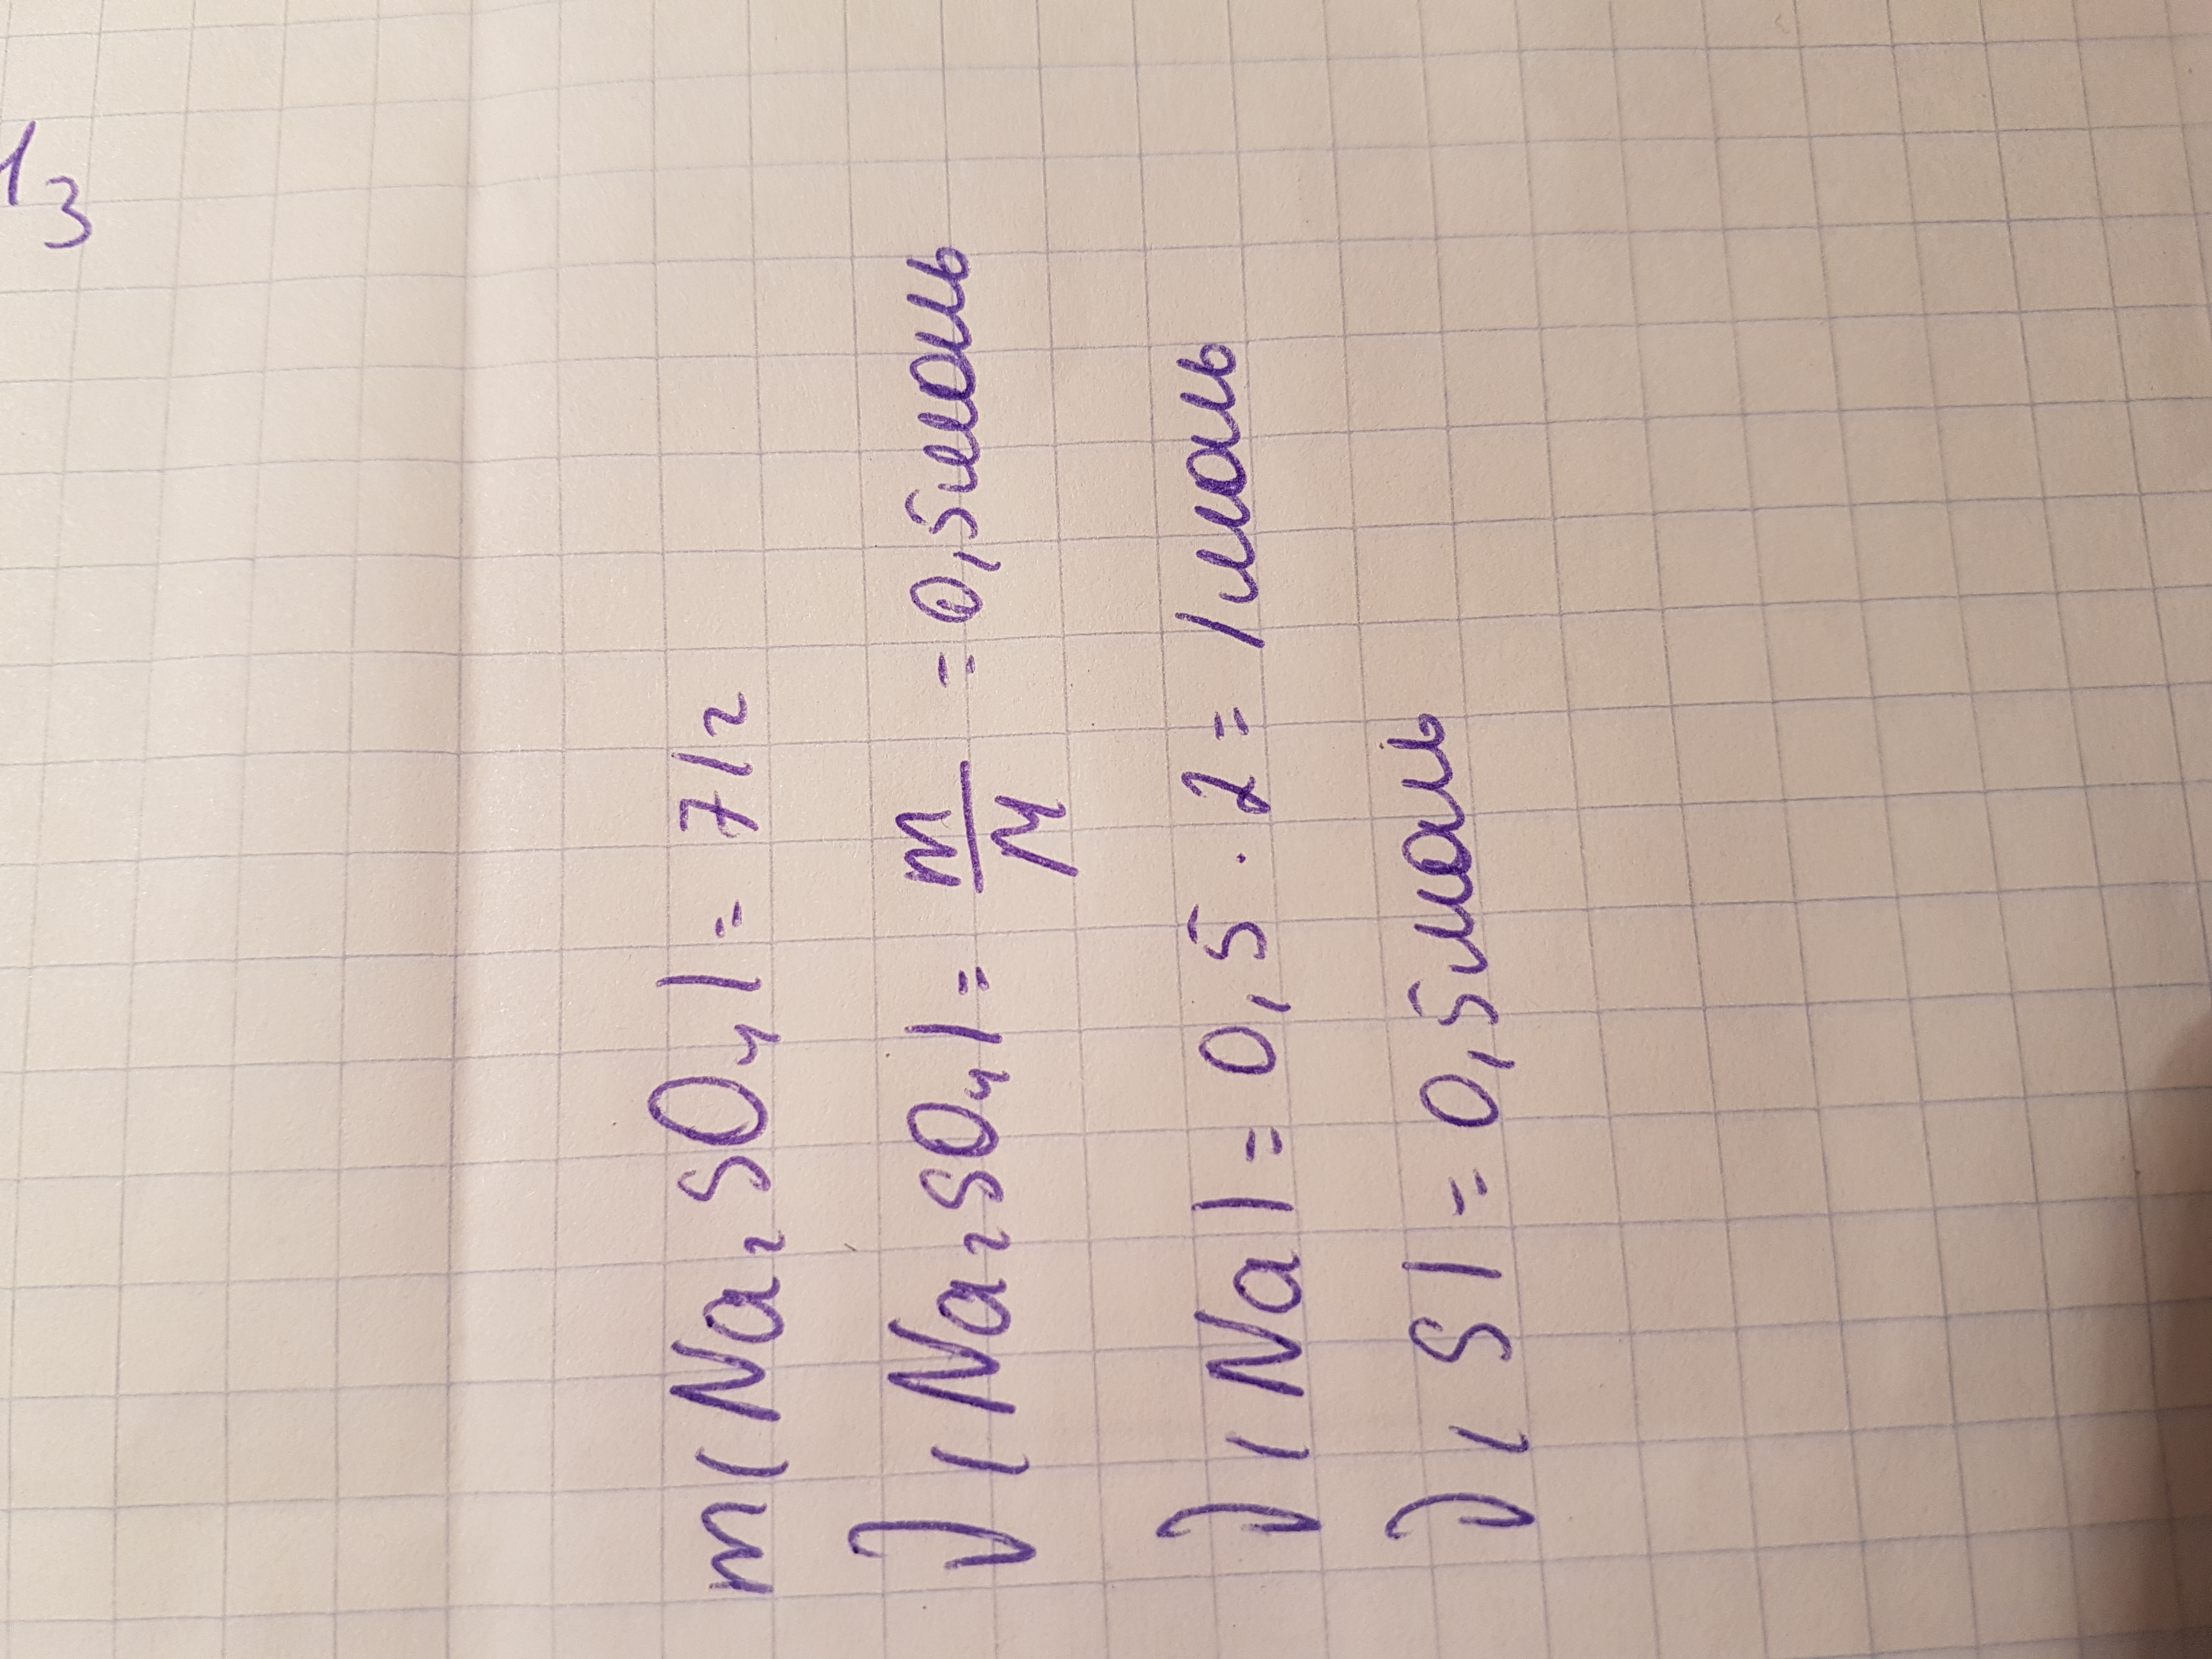 13
m(Na₂SO₄) = 71г
ν(Na₂SO₄) = m/M = 0,5моль
ν(Na) = 0,5 · 2 = 1моль
ν(S) = 0,5моль